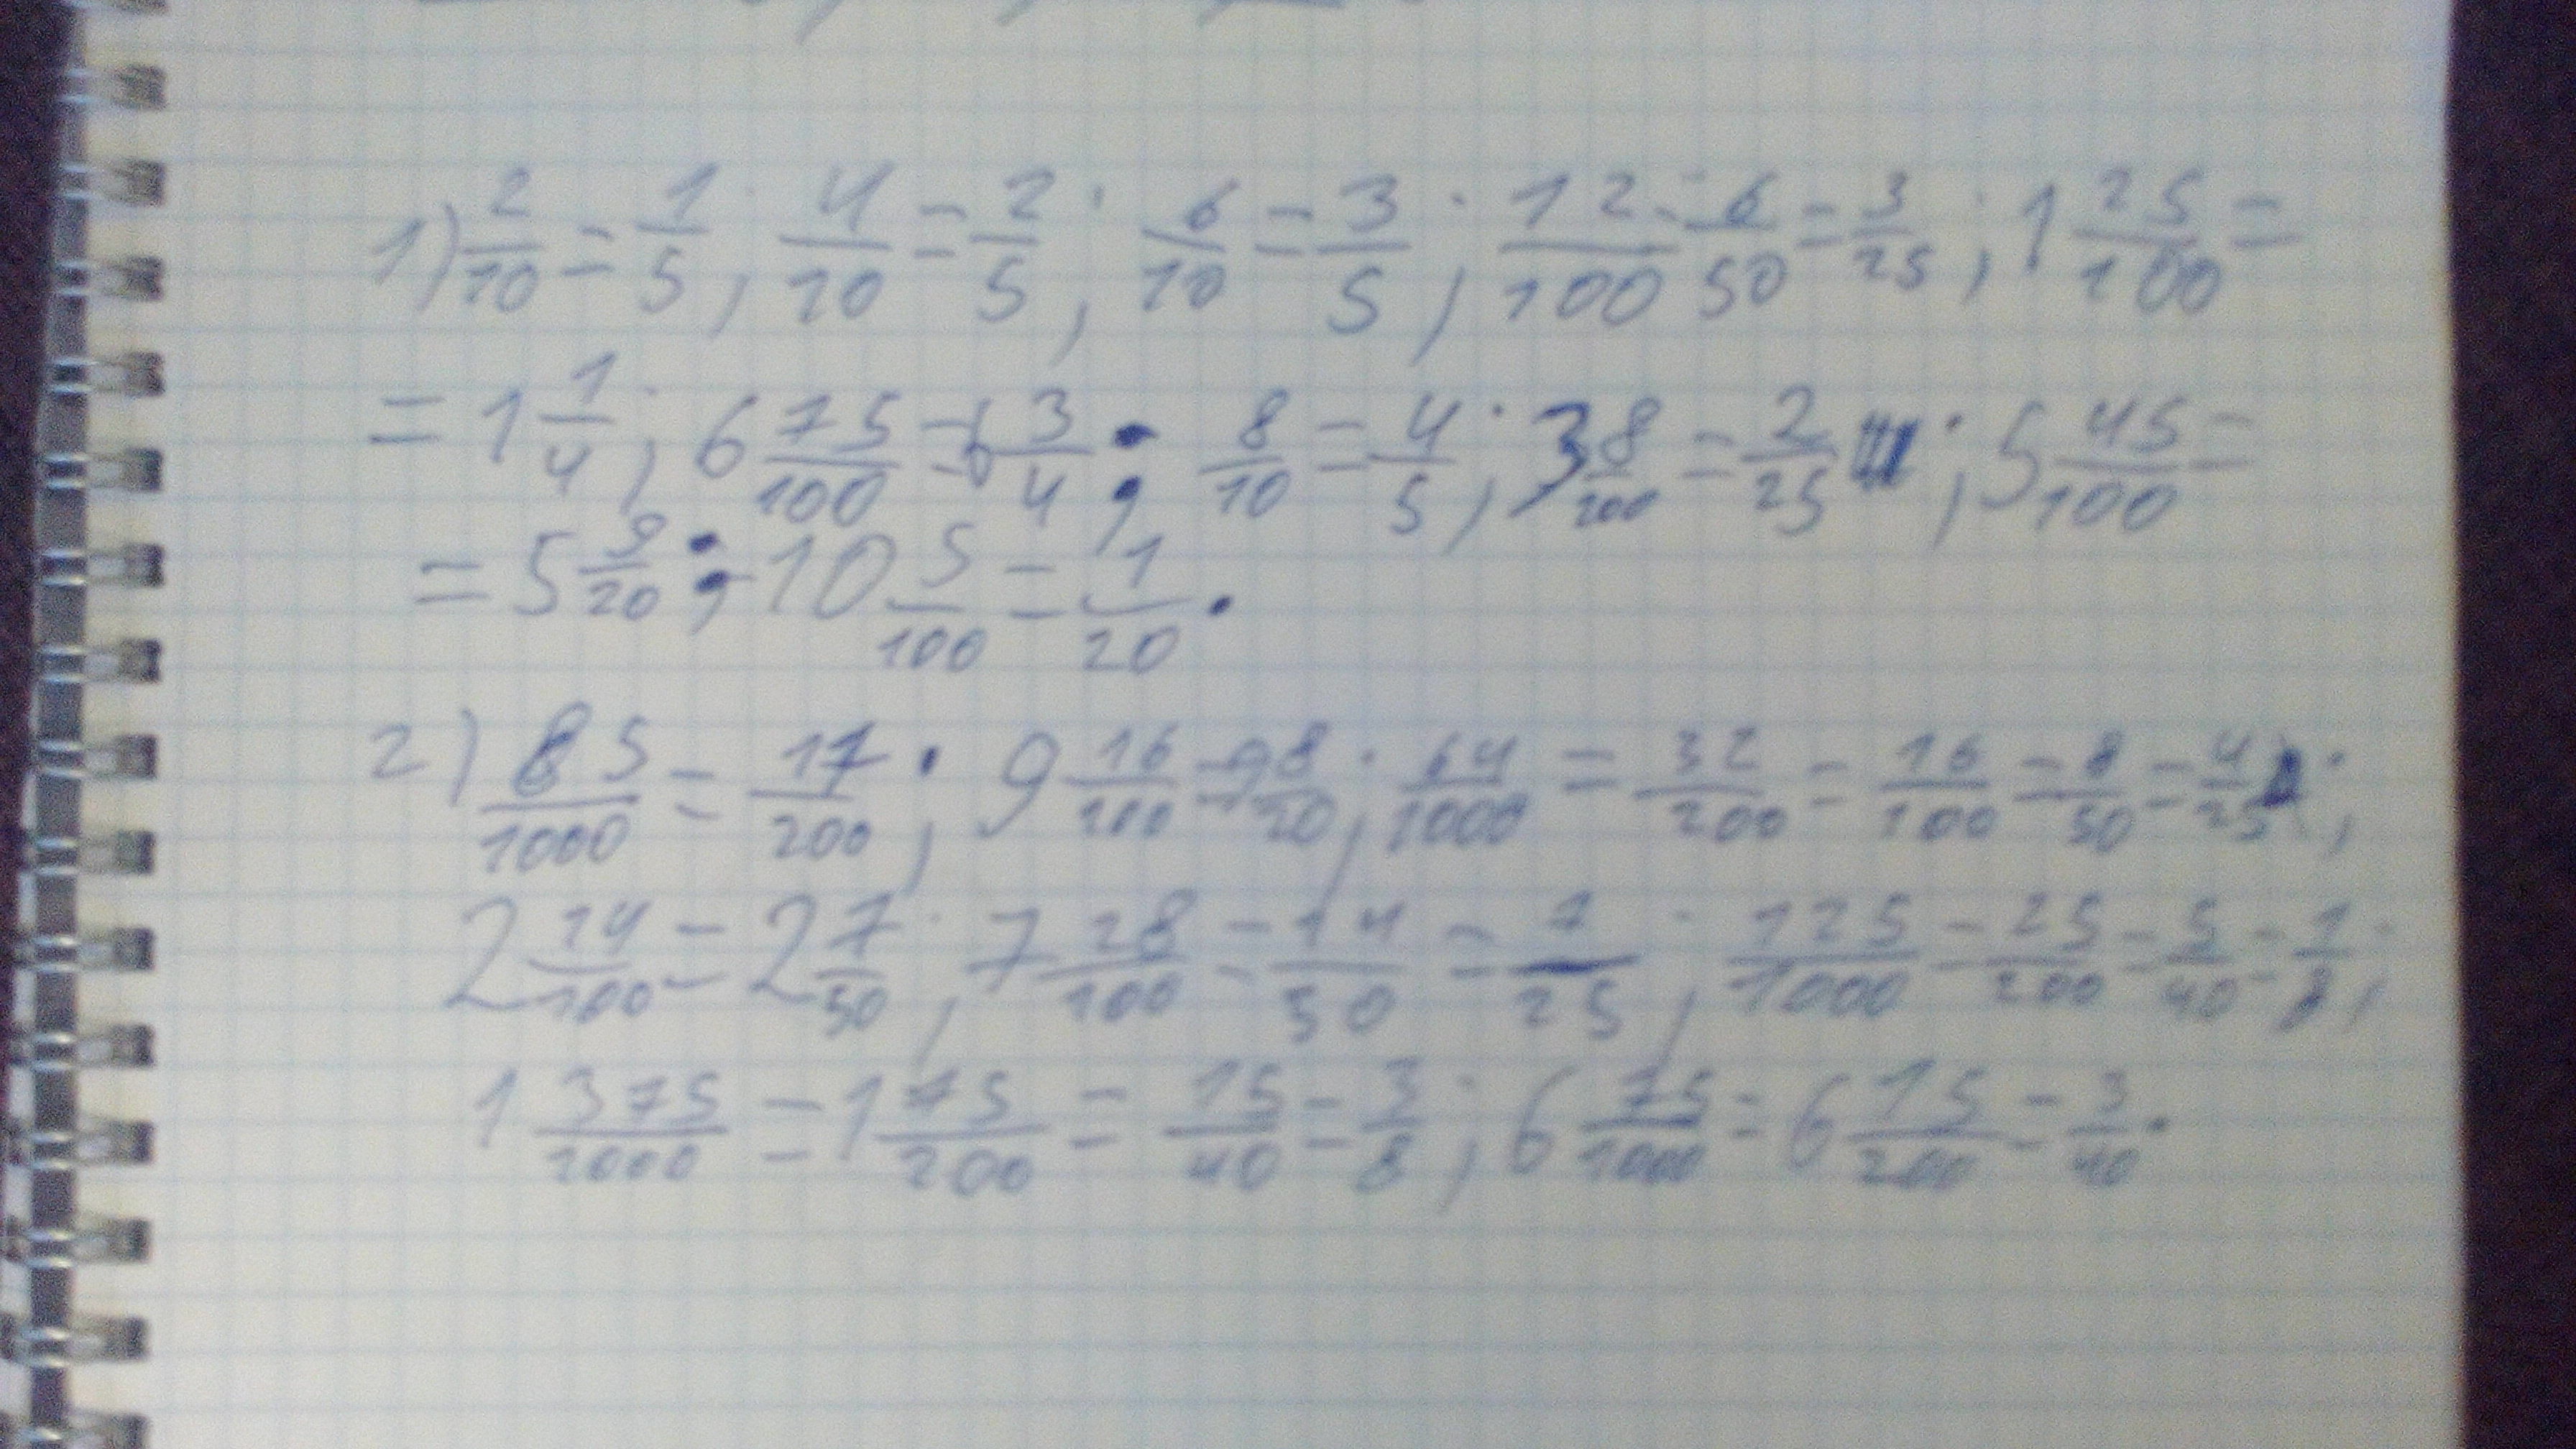 1) 2/10 = 1/5; 4/10 = 2/5; 6/10 = 3/5; 12/100 = 6/50 = 3/25; 1 25/100 =
= 1 1/4; 6 75/100 = 6 3/4; 8/10 = 4/5; 3 8/100 = 2/25; 5 45/100 =
= 5 9/20; 10 5/100 = 1/20.
2) 85/1000 = 17/200; 9 16/100 = 9 8/20; 64/1000 = 32/200 = 16/100 = 8/50 = 4/25;
2 14/100 = 2 7/50; 7 28/100 = 14/50 = 7/25; 125/1000 = 25/200 = 5/40 = 1/8;
1 375/1000 = 1 75/200 = 15/40 = 3/8; 6 75/1000 = 6 15/200 = 3/40.